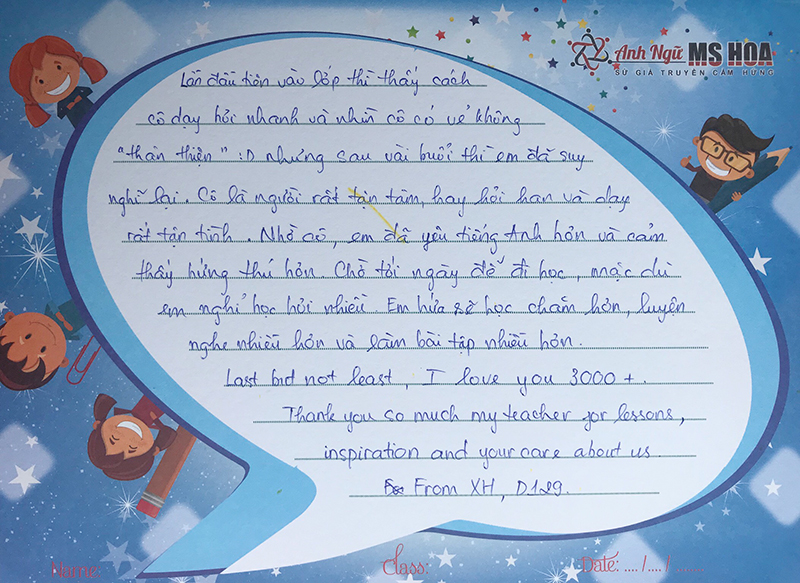 Anh Ngữ MS HOA
SỨ GIẢ TRUYỀN CẢM HỨNG
Lần đầu tiên vào lớp thì thấy cách
cô dạy hơi nhanh và nhìn cô có vẻ không
"thân thiện" :D nhưng sau vài buổi thì em đã suy
nghĩ lại. Cô là người rất tận tâm, hay hỏi han và dạy
rất tận tình. Nhờ cô, em đã yêu tiếng Anh hơn và cảm
thấy hứng thú hơn. Chờ tới ngày để đi học, mặc dù
em nghỉ học hơi nhiều. Em hứa sẽ học chăm hơn, luyện
nghe nhiều hơn và làm bài tập nhiều hơn.
Last bid not least, I love you 3000 +.
Thank you so much my teacher for lessons,
inspiration and your care about us.
From XH, D129.
Name:
Class:
Date: ..../..../........